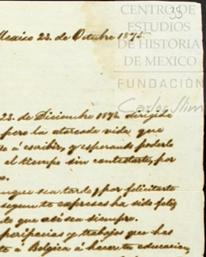 35
CENTRO DE
ESTUDIOS
DE HISTORIA
DE MEXICO
FUNDACIÓN
Carlos Slim
Mexico 22. de Octubre 1875.
23. de Diciembre 1874 dirigida
pero la atareada vida que
á escribir, y esperando poderlo
el tiempo sin contestarte, por
aunque sea tarde, y por felicitarte
segun te espresas ha sido feliz
que asi sea siempre.
peripecias y trabajos que has
á Belgica á hacer tu educacion,